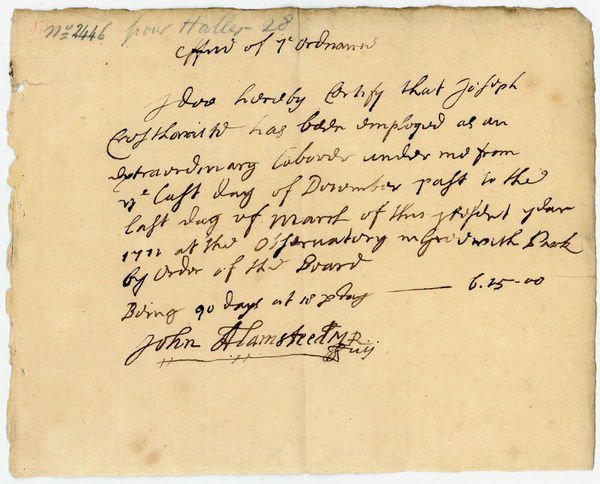 No 2446 pour Haller 28
Office of ye Ordnance
I doe hereby Certify that Joseph
Crosthwaite has been employed as an
extraordinary Laborer under me from
ye last day of December past to the
last day of March of this present year
1711 at the Observatory in Greenwich Park
by Order of the Board
Being 90 days at 18 p day — 6.15-00
John Flamsteed MR